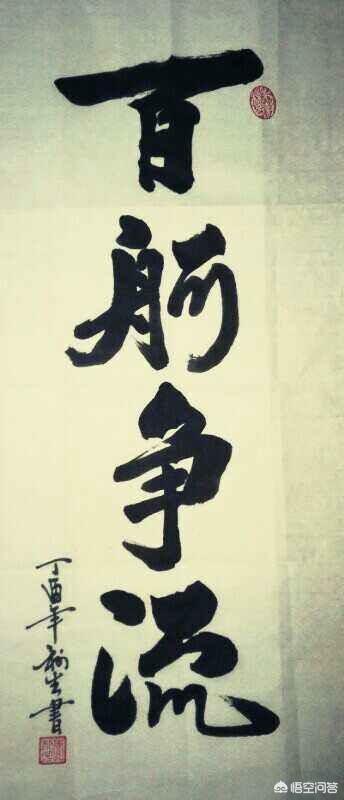 百舸争流
丁酉年生書
悟空问答